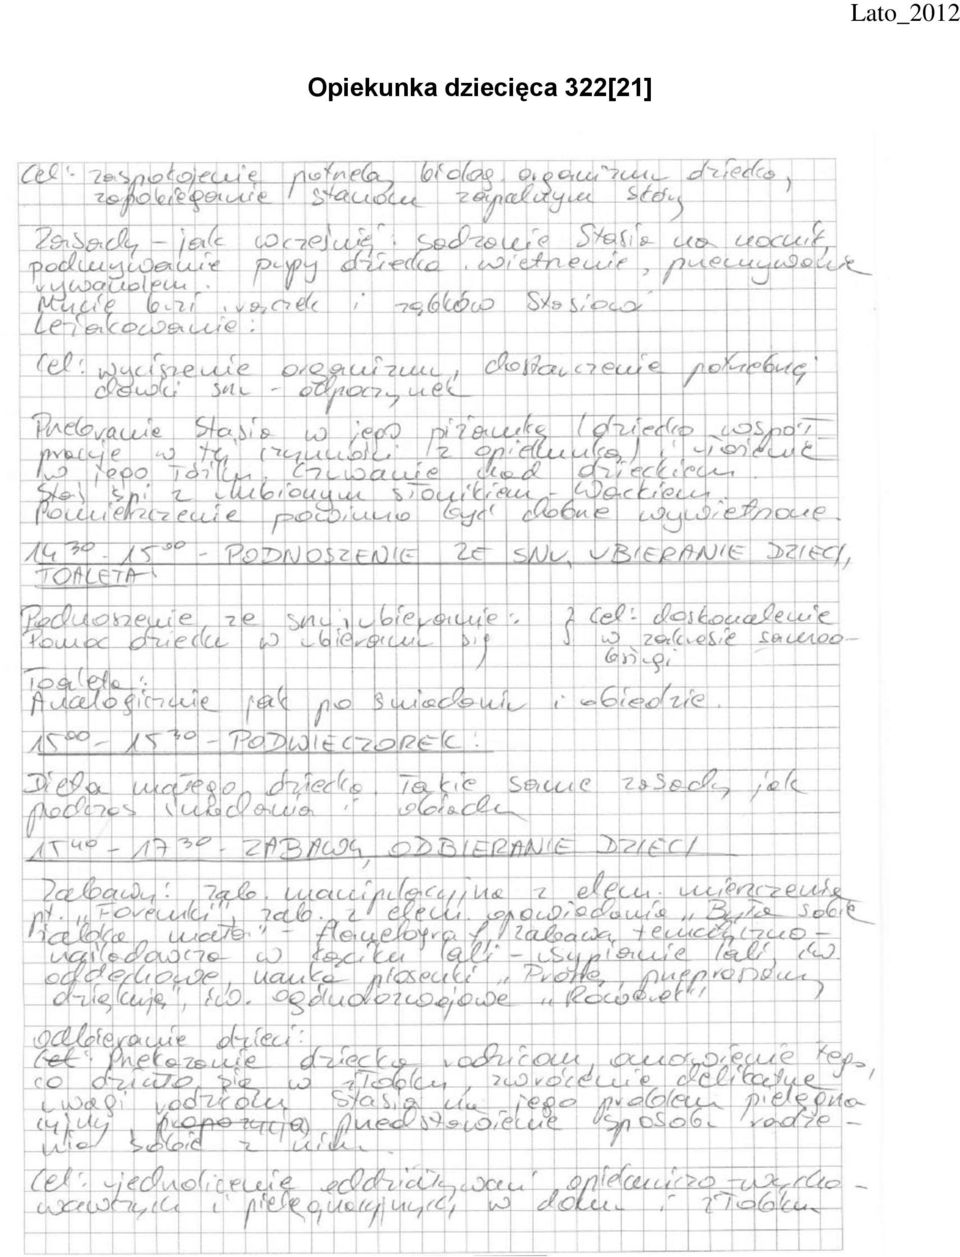 Lato_2012
Opiekunka dziecięca 322[21]
Cel: zaspokojenie potrzeb biolog. organizmu dziecka,
zapobieganie stanom zapalnym skóry
Zasady - jak wcześniej: sadzanie Stasia na nocnik,
podmywanie pupy dziecka. wietrzenie, przemywanie
rywanolem.
Mycie buzi, rączek i ząbków Stasiowi
Leżakowanie:
Cel: wyciszenie organizmu, dostarczenie potrzebnej
dawki snu - odpoczynek
Przebranie Stasia w jego piżamkę (dziecko współ
pracuje w tej czynności z opiekunką) i ułożenie
w jego łóżku, czuwanie nad dzieckiem.
Staś śpi z ulubionym słonikiem - Wackiem.
Pomieszczenie powinno być dobrze wywietrzone.
14 30 - 15 00 - PODNOSZENIE ZE SNU, UBIERANIE DZIECI,
TOALETA
Podnoszenie ze snu i ubieranie: } Cel: doskonalenie
Pomoc dziecku w ubieraniu się } w zakresie samoo-
bsługi
Toaleta:
Analogicznie jak po śniadaniu i obiedzie.
15 00 - 15 30 - PODWIECZOREK:
Dieta małego dziecka. Takie same zasady jak
podczas śniadania i obiadu
15 40 - 17 30 - ZABAWY, ODBIERANIE DZIECI
Zabawy: zab. manipulacyjna z elem. mierzenia
pt. "Foremki", zab. z elem. opowiadania "Była sobie
żabka mała" - flanelograf, zabawa tematyczno-
naśladowcza w kąciku lali - usypianie lali, ćw.
oddechowe, nauka piosenki "Proszę, przepraszam,
dziękuję", ćw. ogólnorozwojowe "Rowerek"
Odbieranie dzieci:
Cel: Przekazanie dziecka rodzicom, omówienie tego,
co działo się w żłobku, zwrócenie delikatnie
uwagi rodzicom Stasia na jego problem pielęgna
cyjny propozycja przedstawienie sposobu radze-
nia sobie z nim.
Cel: ujednolicenie oddziaływań opiekuńczo-wycho-
wawczych i pielęgnacyjnych w domu i żłobku